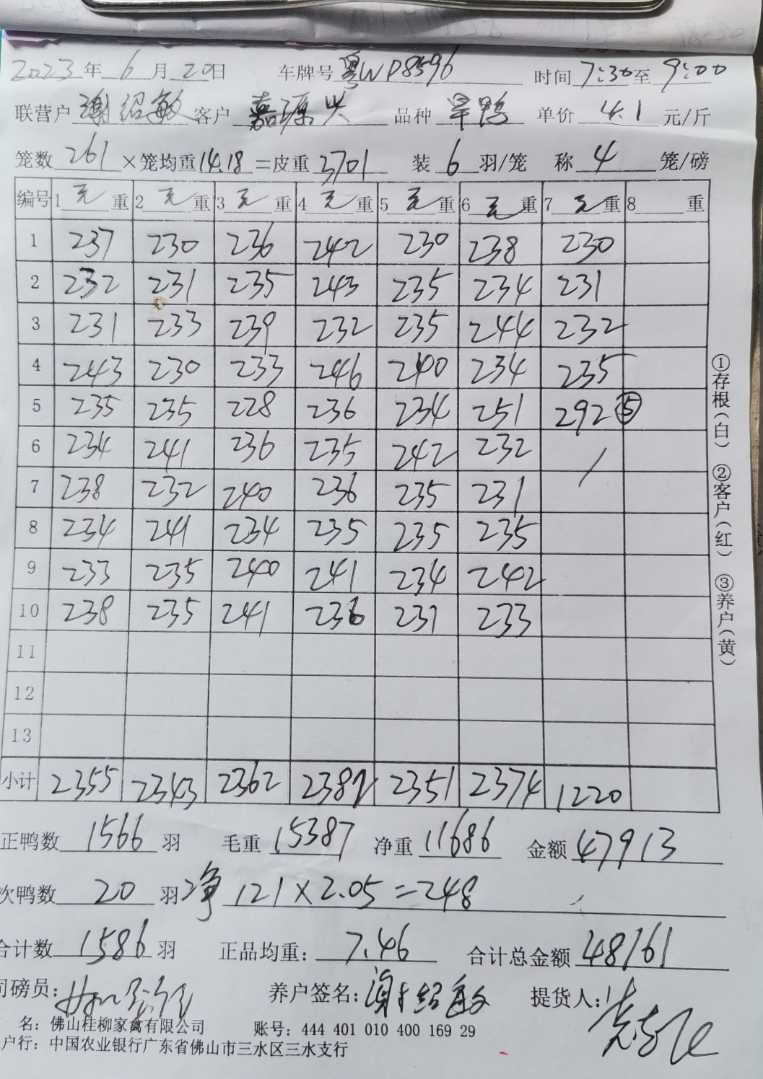 2023年6月20日 车牌号 粤WP8596 时间7:30至9:00
联营户 谢绍敏 客户 嘉源兴 品种 旱鸭 单价 4.1 元/斤
笼数 261 ×笼均重14.18=皮重 3701 装 6 羽/笼 称 4 笼/磅
编号 1 毛 重 2 毛 重 3 毛 重 4 毛 重 5 毛 重 6 毛 重 7 毛 重 8 重
1 237 230 236 242 230 238 230
2 232 231 235 243 235 234 231
3 231 233 239 232 235 244 232
4 243 230 233 246 240 234 235
5 235 235 228 236 234 251 292⑤
6 234 241 236 235 242 232 /
7 238 232 240 236 235 231
8 234 241 234 235 235 235
9 233 235 240 241 234 242
10 238 235 241 236 231 233
11
12
13
小计 2355 2343 2362 2382 2351 2374 1220
①存根(白) ②客户(红) ③养户(黄)
正鸭数 1566 羽 毛重 15387 净重 11686 金额 47913
次鸭数 20 羽 净 121×2.05=248
合计数 1586 羽 正品均重: 7.46 合计总金额 48161
司磅员: 养户签名: 谢绍敏 提货人:
名: 佛山桂柳家禽有限公司 账号: 444 401 010 400 169 29
户行: 中国农业银行广东省佛山市三水区三水支行